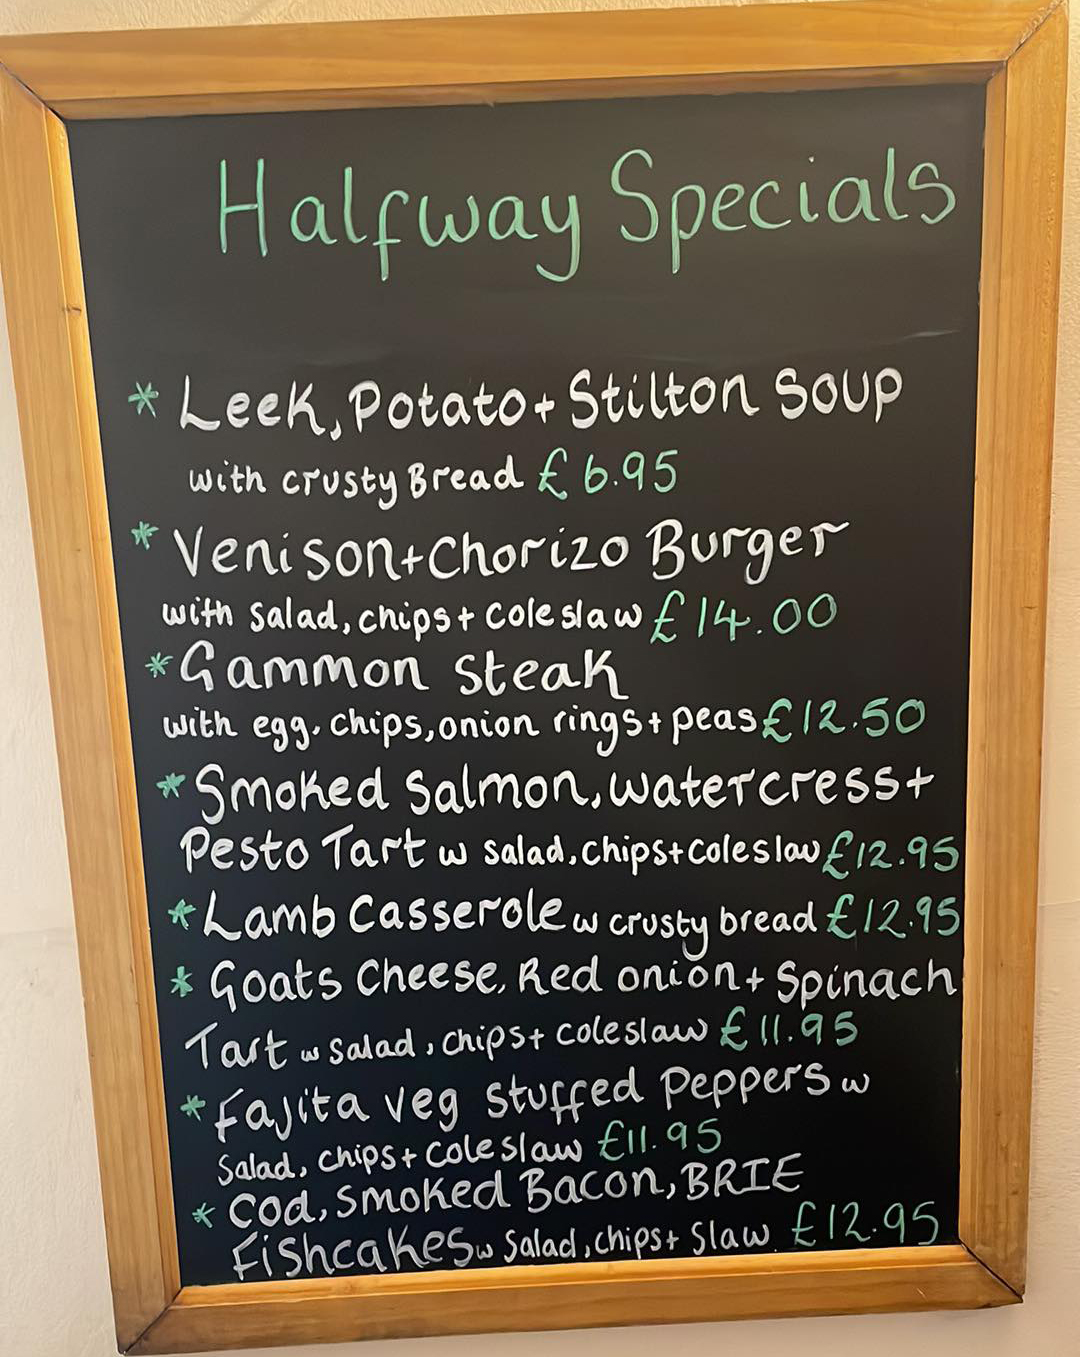 Halfway Specials
* Leek, Potato + Stilton Soup
with crusty Bread £6.95
* Venison + Chorizo Burger
with salad, chips + coleslaw £14.00
* Gammon steak
with egg, chips, onion rings + peas £12.50
* Smoked Salmon, watercress +
Pesto Tart w salad, chips + coleslaw £12.95
* Lamb Casserole w crusty bread £12.95
* Goats Cheese, Red onion + Spinach
Tart w salad, chips + coleslaw £11.95
* Fajita veg stuffed peppers w
salad, chips + coleslaw £11.95
* Cod, smoked Bacon, BRIE
Fishcakes w salad, chips + slaw £12.95